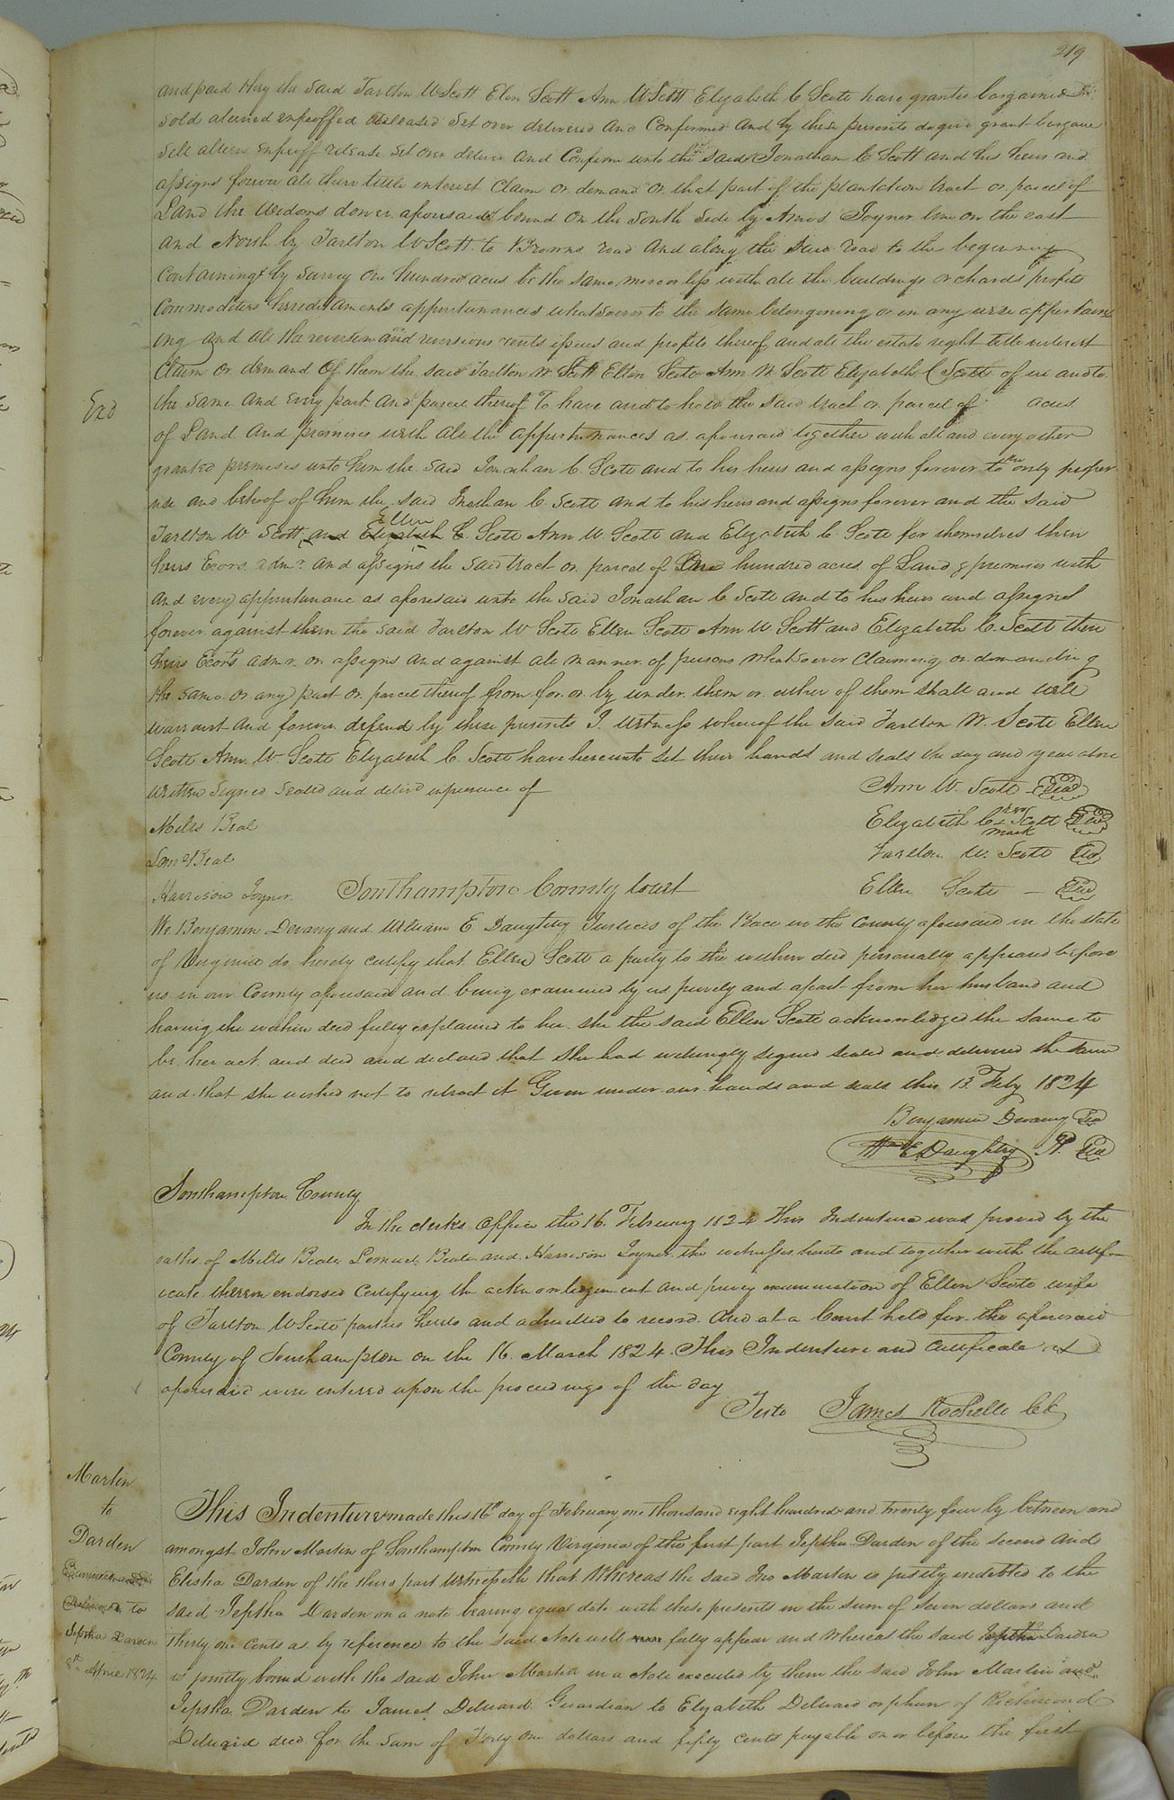 219
and paid they the said Tarlton W Scott Elen Scott Ann W Scott Elizabeth C Scott have granted bargained &
sold aliened enfeoffed released set over delivered and Confirmed and by these presents do give grant bargain
sell alien enfeoff release set over deliver and Confirm unto the said Jonathan C Scott and his heirs and
assigns forever all there title interest Claim or demand or that part of the plantation tract or parcel of
Land the widows dower aforesaid bound on the south side by Amos Joyner line on the east
and North by Tarlton W Scott to Browns road and along the said road to the beginning
Containing by survey one hundred acres be the same more or less with all the buildings orchards profits
Commodities hereditaments appurtenances whatsoever to the same belongining or in any wise appertain
ing and all the reversion and reversions rents issues and profits thereof and all the estate right title interest
Claim or demand of them the said Tarlton W Scott Ellen Scott Ann W. Scott Elizabeth C Scott of in and to
Exd
the same and every part and parcel thereof To have and to hold the said tract or parcel of acres
of Land and premises with all the appurtenances as aforesaid together with all and every other
granted premises unto him the said Jonathan C Scott and to his heirs and assigns forever to the only proper
use and behoof of him the said Jonathan C Scott and to his heirs and assigns forever and the said
Tarlton W Scott and Ellen Elizabeth C. Scott Ann W Scott and Elizabeth C. Scott for themselves their
heirs Exors adm. and assigns the said tract or parcel of One hundred acres of Land & premises with
and every appurtenance as aforesaid unto the said Jonathan C Scott and to his heirs and assigns
forever against them the said Tarlton W Scott Ellen Scott Ann W Scott and Elizabeth C. Scott their
heirs Exors adm. or assigns and against all manner of persons whatsoever Claiming or demanding
the same or any part or parcel thereof from for or by under them or either of them shall and will
warrant and forever defend by these presents I. witness whereof the said Tarlton W. Scott Ellen
Scott Ann W Scott Elizabeth C. Scott have hereunto set their hands and seals the day and year above
written Signed Sealed and deliv'd in presence of
Ann W. Scott
Mills Beal
Elizabeth C her Scott
mark
Lem Beal
Tarlton W. Scott
Harrison Joyner
Southampton County Court
Ellen Scott
We Benjamin Devany and William E Daughtry Justices of the Peace in the County aforesaid in the state
of Virginia do hereby certify that Ellen Scott a party to the within deed personally appeared before
us in our County aforesaid and being examined by us privily and apart from her husband and
having the within deed fully explained to her she the said Ellen Scott acknowledged the same to
be her act and deed and declared that she had willingly signed sealed and delivered the same
and that she wished not to retract it Given under our hands and seals this 13 Feby 1824
Benjamin Devany
Wm E Daughtry
Southampton County
In the clerks Office the 16. February 1824 This Indenture was proved by the
oaths of Mills Beale Lemuel Beale and Harrison Joyner the witnesses hereto and together with the certifi
icate thereon endorsed Certifying the acknowledgment and privy examination of Ellen Scott wife
of Tarlton W Scott parties hereto and admitted to record. And at a Court held for the aforesaid
County of Southampton on the 16. March 1824. This Indenture and Certificate as
aforesaid were entered upon the proceedings of the day
Teste James Rochelle Clk
Martin
to
Darden
to
Jeptha Darden
8th April 1824
This Indenture made this 16th day of February one thousand eight hundred and twenty four by between and
amongst John Martin of Southampton County Virginia of the first part Jeptha Darden of the second and
Elisha Darden of the third part Witnesseth that Whereas the said Jno Martin is justly indebted to the
said Jeptha Darden on a note bearing equal date with these presents in the sum of seven dollars and
thirty one cents as by reference to the said Note will fully appear and Whereas the said Jeptha Darden
is jointly bound with the said John Martin in a Note executed by them the said John Martin and
Jeptha Darden to James Deloard Guardian to Elizabeth Deloard orphan of Richmond
Deloard decd for the sum of Forty one dollars and fifty cents payable on or before the first